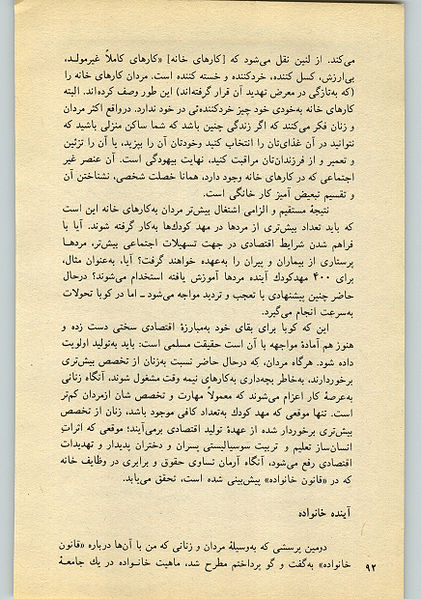 می‌کند. از لنین نقل می‌شود که [کارهای خانه] «کارهای کاملاً غیرمولد،
بی‌ارزش، کسل کننده، خردکننده و خسته کننده است. مردان کارهای خانه را
(که به‌تازگی در معرض تهدید آن قرار گرفته‌اند) این طور وصف کرده‌اند. البته
کارهای خانه به‌خودی خود چیز خردکننده‌ئی در خود ندارد. درواقع اکثر مردان
و زنان فکر می‌کنند که اگر زندگی چنین باشد که شما ساکن منزلی باشید که
نتوانید در آن غذای‌تان را انتخاب کنید وخودتان آن را بپزید، یا آن را تزئین
و تعمیر و از فرزندان‌تان مراقبت کنید، نهایت بیهودگی است. آن عنصر غیر
اجتماعی که در کارهای خانه وجود دارد، همانا خصلت شخصی، نشناختن آن
و تقسیم تبعیض آمیز کار خانگی است.
نتیجهٔ مستقیم و الزامی اشتغال بیش‌تر مردان به‌کارهای خانه این است
که باید تعداد بیش‌تری از مردها در مهد کودك‌ها به‌کار گرفته شوند. آیا با
فراهم شدن شرایط اقتصادی در جهت تسهیلات اجتماعی بیش‌تر، مردهـا
پرستاری از بیماران و پیران را به‌عهده خواهند گرفت؟ آیا، به‌عنوان مثال،
برای ۴۰۰ مهدکودك آینده مردها آموزش یافته استخدام می‌شوند؟ درحال
حاضر چنین پیشنهادی با تعجب و تردید مواجه می‌شود ـ اما در کوبا تحولات
به‌سرعت انجام می‌گیرد.
این که کوبا برای بقای خود به‌مبارزهٔ اقتصادی سختی دست زده و
هنوز هم آمادهٔ مواجهه با آن است حقیقت مسلمی است: باید به‌تولید اولویت
داده شود. هرگاه مردان، که درحال حاضر نسبت به‌زنان از تخصص بیش‌تری
برخوردارند، به‌خاطر بچه‌داری به‌کارهای نیمه وقت مشغول شوند، آنگاه زنانی
به‌عرصهٔ کار اعزام می‌شوند که معمولاً مهارت و تخصص شان ازمردان کم‌تر
است. تنها موقعی که مهد کودك به‌تعداد کافی موجود باشد، زنان از تخصص
بیش‌تری برخوردار شده از عهدهٔ تولید اقتصادی برمی‌آیند؛ موقعی که اثراتِ
انسان‌ساز تعلیم و تربیت سوسیالیستی پسران و دختران پدیدار و تهدیدات
اقتصادی رفع می‌شود، آنگاه آرمان تساوی حقوق و برابری در وظایف خانه
که در «قانون خانواده» پیش‌بینی شده است، تحقق می‌یابد.
آینده خانواده
دومین پرسشی که به‌وسیلهٔ مردان و زنانی که من با آن‌ها درباره «قانون
خانواده» به‌گفت و گو پرداختم مطرح شد، ماهیت خانـواده در یك جامعـهٔ
۹۲